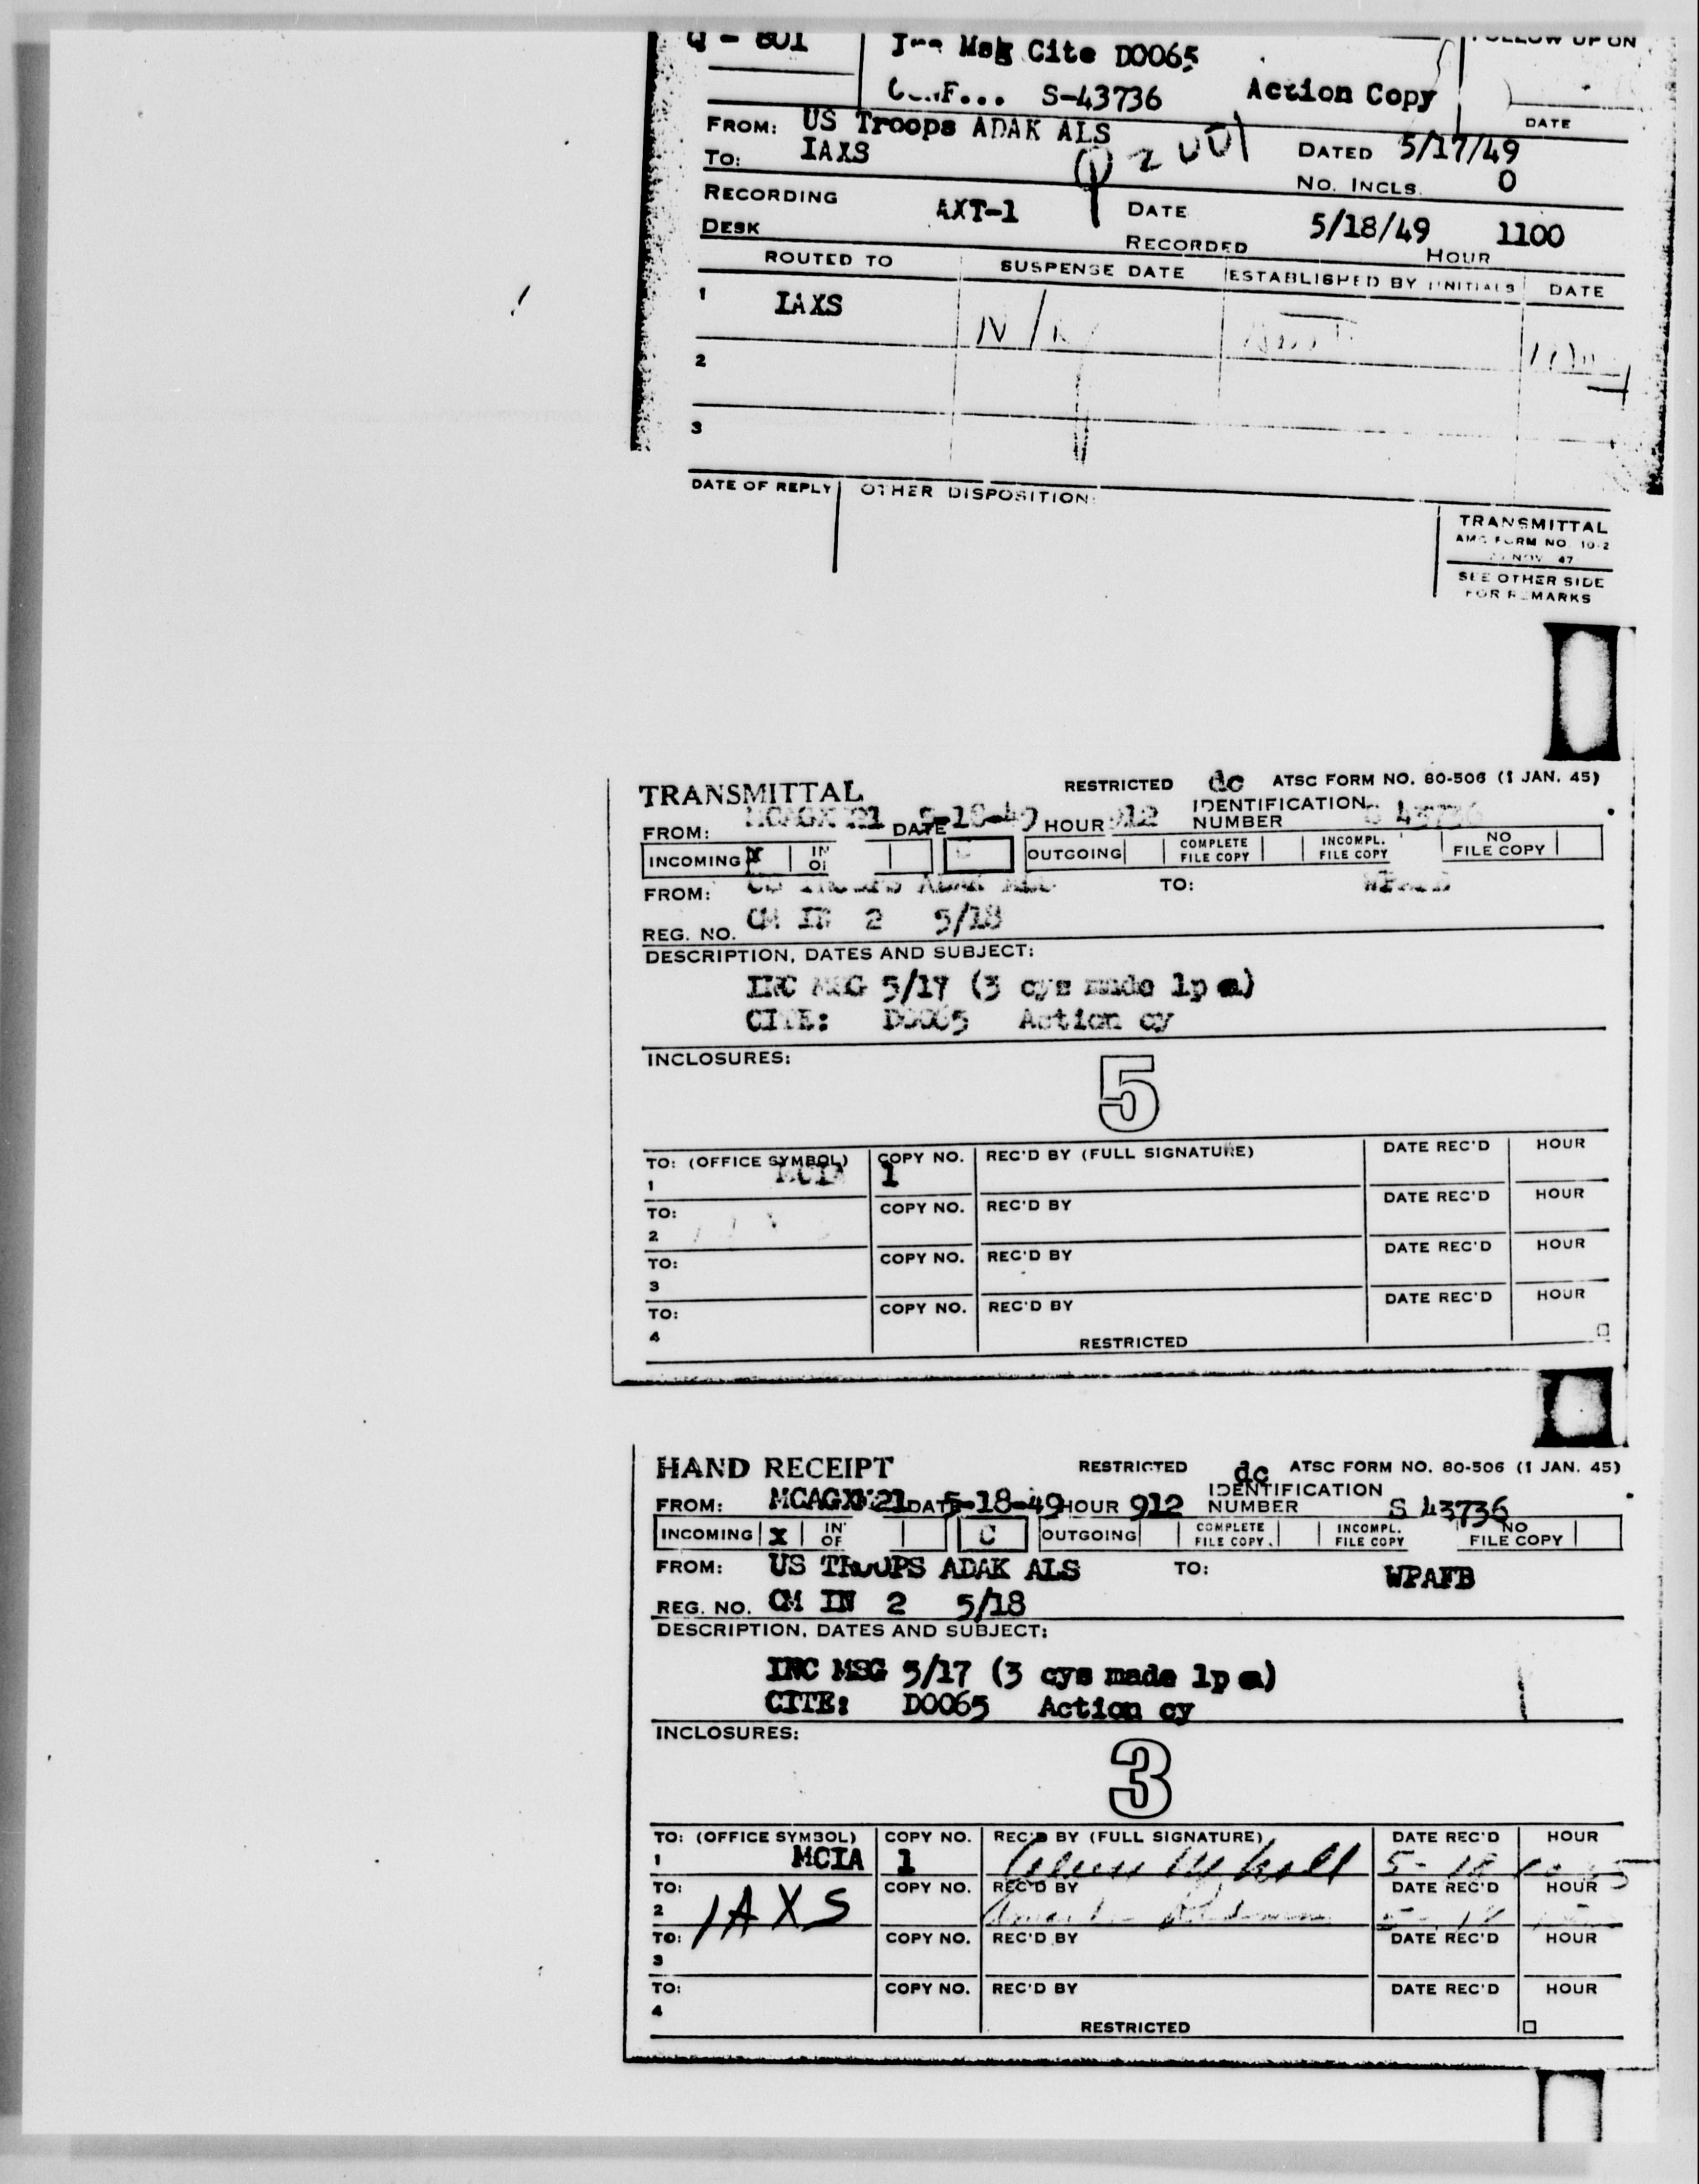 Q - 801 Msg Cite D0065 FOLLOW UP ON
S-43736 Action Copy
DATE
FROM: US Troops ADAK ALS
TO: IAXS DATED 5/17/49
NO. INCLS. 0
RECORDING DESK AXT-1 DATE RECORDED 5/18/49 HOUR 1100
ROUTED TO SUSPENSE DATE ESTABLISHED BY INITIALS DATE
1 IAXS
2
3
DATE OF REPLY OTHER DISPOSITION:
TRANSMITTAL
AMC FORM NO. 10-2
NOV 47
SEE OTHER SIDE
FOR REMARKS
TRANSMITTAL RESTRICTED dc ATSC FORM NO. 80-506 (1 JAN. 45)
FROM: DATE 5-18-49 HOUR 912 IDENTIFICATION NUMBER S 43736
INCOMING X OUTGOING COMPLETE FILE COPY INCOMPL. FILE COPY NO FILE COPY
FROM: US TROOPS ADAK ALS TO: WPAFB
REG. NO. CM IN 2 5/18
DESCRIPTION, DATES AND SUBJECT:
INC MSG 5/17 (3 cys made 1p a)
CITE: D0065 Action cy
INCLOSURES:
5
TO: (OFFICE SYMBOL) COPY NO. REC'D BY (FULL SIGNATURE) DATE REC'D HOUR
1 MCIA 1
TO: COPY NO. REC'D BY DATE REC'D HOUR
2
TO: COPY NO. REC'D BY DATE REC'D HOUR
3
TO: COPY NO. REC'D BY DATE REC'D HOUR
4
RESTRICTED
HAND RECEIPT RESTRICTED dc ATSC FORM NO. 80-506 (1 JAN. 45)
FROM: DATE 5-18-49 HOUR 912 IDENTIFICATION NUMBER S 43736
INCOMING X C OUTGOING COMPLETE FILE COPY INCOMPL. FILE COPY NO FILE COPY
FROM: US TROOPS ADAK ALS TO: WPAFB
REG. NO. CM IN 2 5/18
DESCRIPTION, DATES AND SUBJECT:
INC MSG 5/17 (3 cys made 1p a)
CITE: D0065 Action cy
INCLOSURES:
3
TO: (OFFICE SYMBOL) COPY NO. REC'D BY (FULL SIGNATURE) DATE REC'D HOUR
1 MCIA 1 5-18
TO: COPY NO. REC'D BY DATE REC'D HOUR
2 IAXS
TO: COPY NO. REC'D BY DATE REC'D HOUR
3
TO: COPY NO. REC'D BY DATE REC'D HOUR
4
RESTRICTED